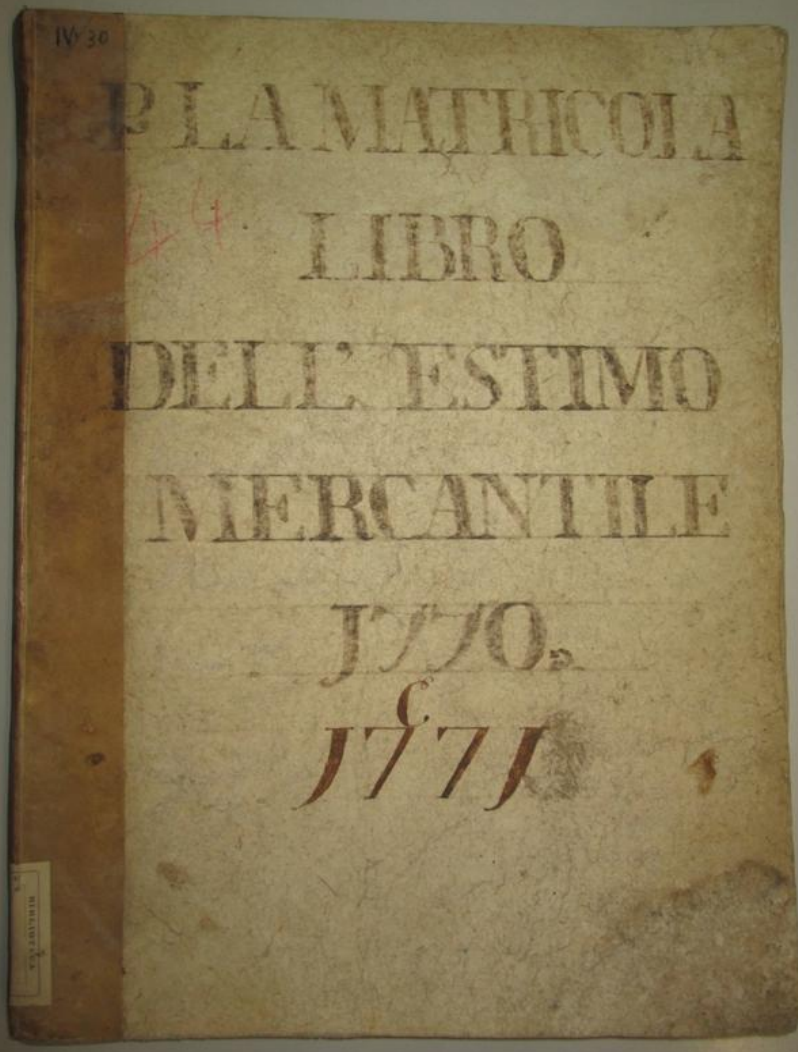 IV 30
P LA MATRICOLA
44
LIBRO
DELL' ESTIMO
MERCANTILE
1770.
e
1771
BIBLIOTECA